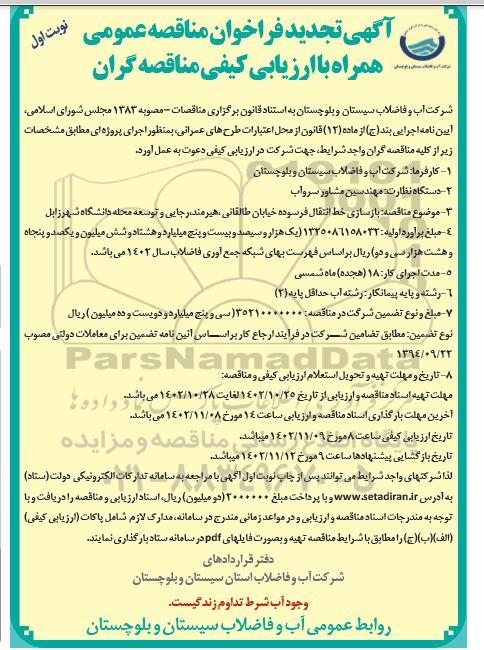 نوبت اول
آگهی تجدید فراخوان مناقصه عمومی
همراه با ارزیابی کیفی مناقصه گران
شرکت آب و فاضلاب سیستان و بلوچستان
شرکت آب و فاضلاب سیستان و بلوچستان به استناد قانون برگزاری مناقصات –مصوبه ۱۳۸۳ مجلس شورای اسلامی،
آیین نامه اجرایی بند (ج) از ماده (۱۲) قانون از محل اعتبارات طرح های عمرانی، بمنظور اجرای پروژه ای مطابق مشخصات
زیر از کلیه مناقصه گران واجد شرایط، جهت شرکت در ارزیابی کیفی دعوت به عمل آورد.
۱- کارفرما: شرکت آب و فاضلاب سیستان و بلوچستان
۲-دستگاه نظارت: مهندسین مشاور سروآب
۳-موضوع مناقصه: بازسازی خط انتقال فرسوده خیابان طالقانی ،هیرمند،رجایی و توسعه محله دانشگاه شهرزابل
۴-مبلغ برآورد اولیه: ۱۳۲۵۰۸۶۱۵۸۰۳۲ (یک هزار و سیصد و بیست و پنج میلیارد و هشتاد و شش میلیون و یکصد و پنجاه
و هشت هزار سی و دو) ریال براساس فهرست بهای شبکه جمع آوری فاضلاب سال ۱۴۰۲ می باشد.
۵-مدت اجرای کار: ۱۸ (هجده) ماه شمسی
۶-رشته و پایه پیمانکار: رشته آب حداقل پایه (۲)
۷-مبلغ و نوع تضمین شرکت در مناقصه: ۳۵۲۱۰۰۰۰۰۰۰ ( سی و پنج میلیارد و دویست و ده میلیون ) ریال
نوع تضمین: مطابق تضامین شرکت در فرآیند ارجاع کار بر اساس آئین نامه تضمین برای معاملات دولتی مصوب
۱۳۹۴/۰۹/۲۲
۸-تاریخ و مهلت تهیه و تحویل استعلام ارزیابی کیفی و مناقصه:
مهلت تهیه اسناد مناقصه و ارزیابی از تاریخ ۱۴۰۲/۱۰/۲۵ لغایت ۱۴۰۲/۱۰/۲۸ می باشد.
آخرین مهلت بارگذاری اسناد مناقصه و ارزیابی ساعت ۱۴ مورخ ۱۴۰۲/۱۱/۰۸ می باشد.
تاریخ ارزیابی کیفی ساعت ۸ مورخ ۱۴۰۲/۱۱/۰۹ میباشد.
تاریخ بازگشایی پیشنهادها ساعت ۹ مورخ ۱۴۰۲/۱۱/۱۲ میباشد.
لذا شرکتهای واجد شرایط می توانند پس از چاپ نوبت اول آگهی با مراجعه به سامانه تدارکات الکترونیکی دولت (ستاد)
به آدرس www.setadiran.ir و با پرداخت مبلغ ۲۰۰۰۰۰۰ (دو میلیون) ریال، اسناد ارزیابی و مناقصه را دریافت و با
توجه به مندرجات اسناد مناقصه و ارزیابی و در مواعد زمانی مندرج در سامانه، مدارک لازم شامل پاکات (ارزیابی کیفی)
(الف)(ب)(ج) را مطابق با شرایط مناقصه تهیه و بصورت فایلهای pdf در سامانه ستاد بارگذاری نمایند.
دفتر قراردادهای
شرکت آب و فاضلاب استان سیستان و بلوچستان
وجود آب شرط تداوم زندگیست.
روابط عمومی آب و فاضلاب سیستان و بلوچستان
ParsNamadData